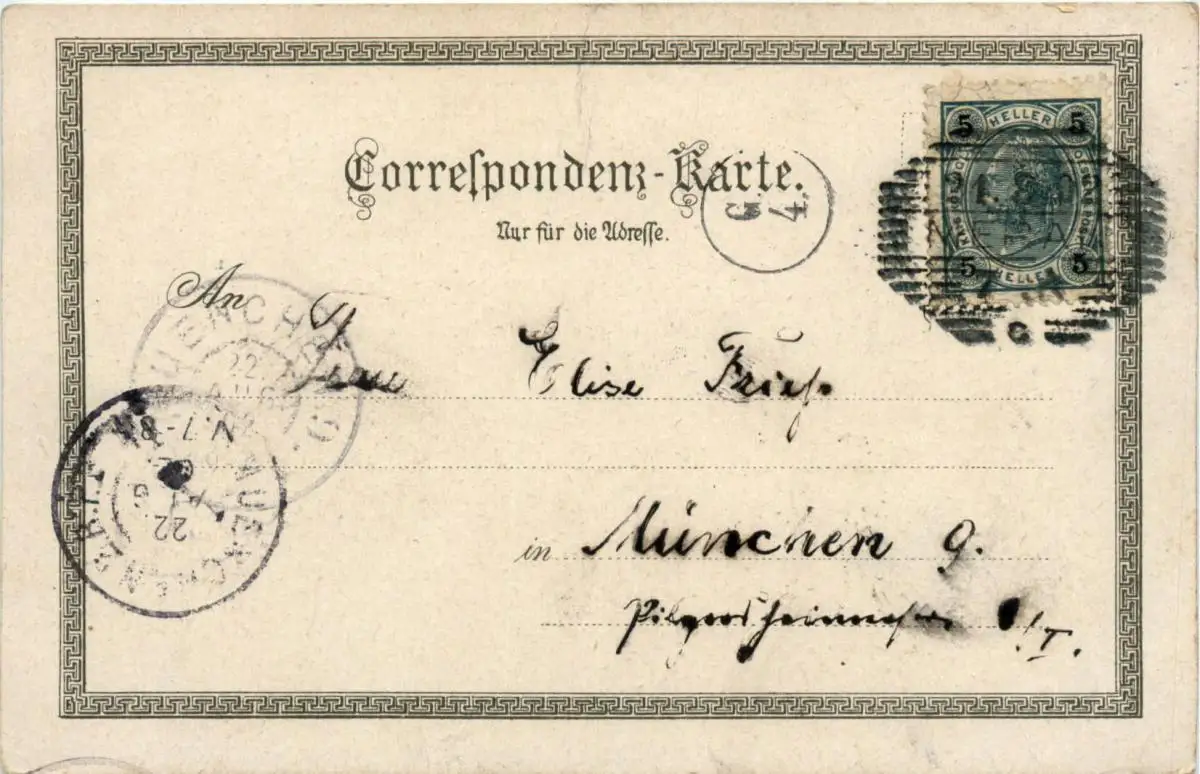 Correspondenz-Karte.
Nur für die Adresse.
5 HELLER 5
5 HELLER 5
G.
4.
An
Frau Elise Frieß
22
AUG
in München 9.
MUENCHEN
N.7-8
22
AUG